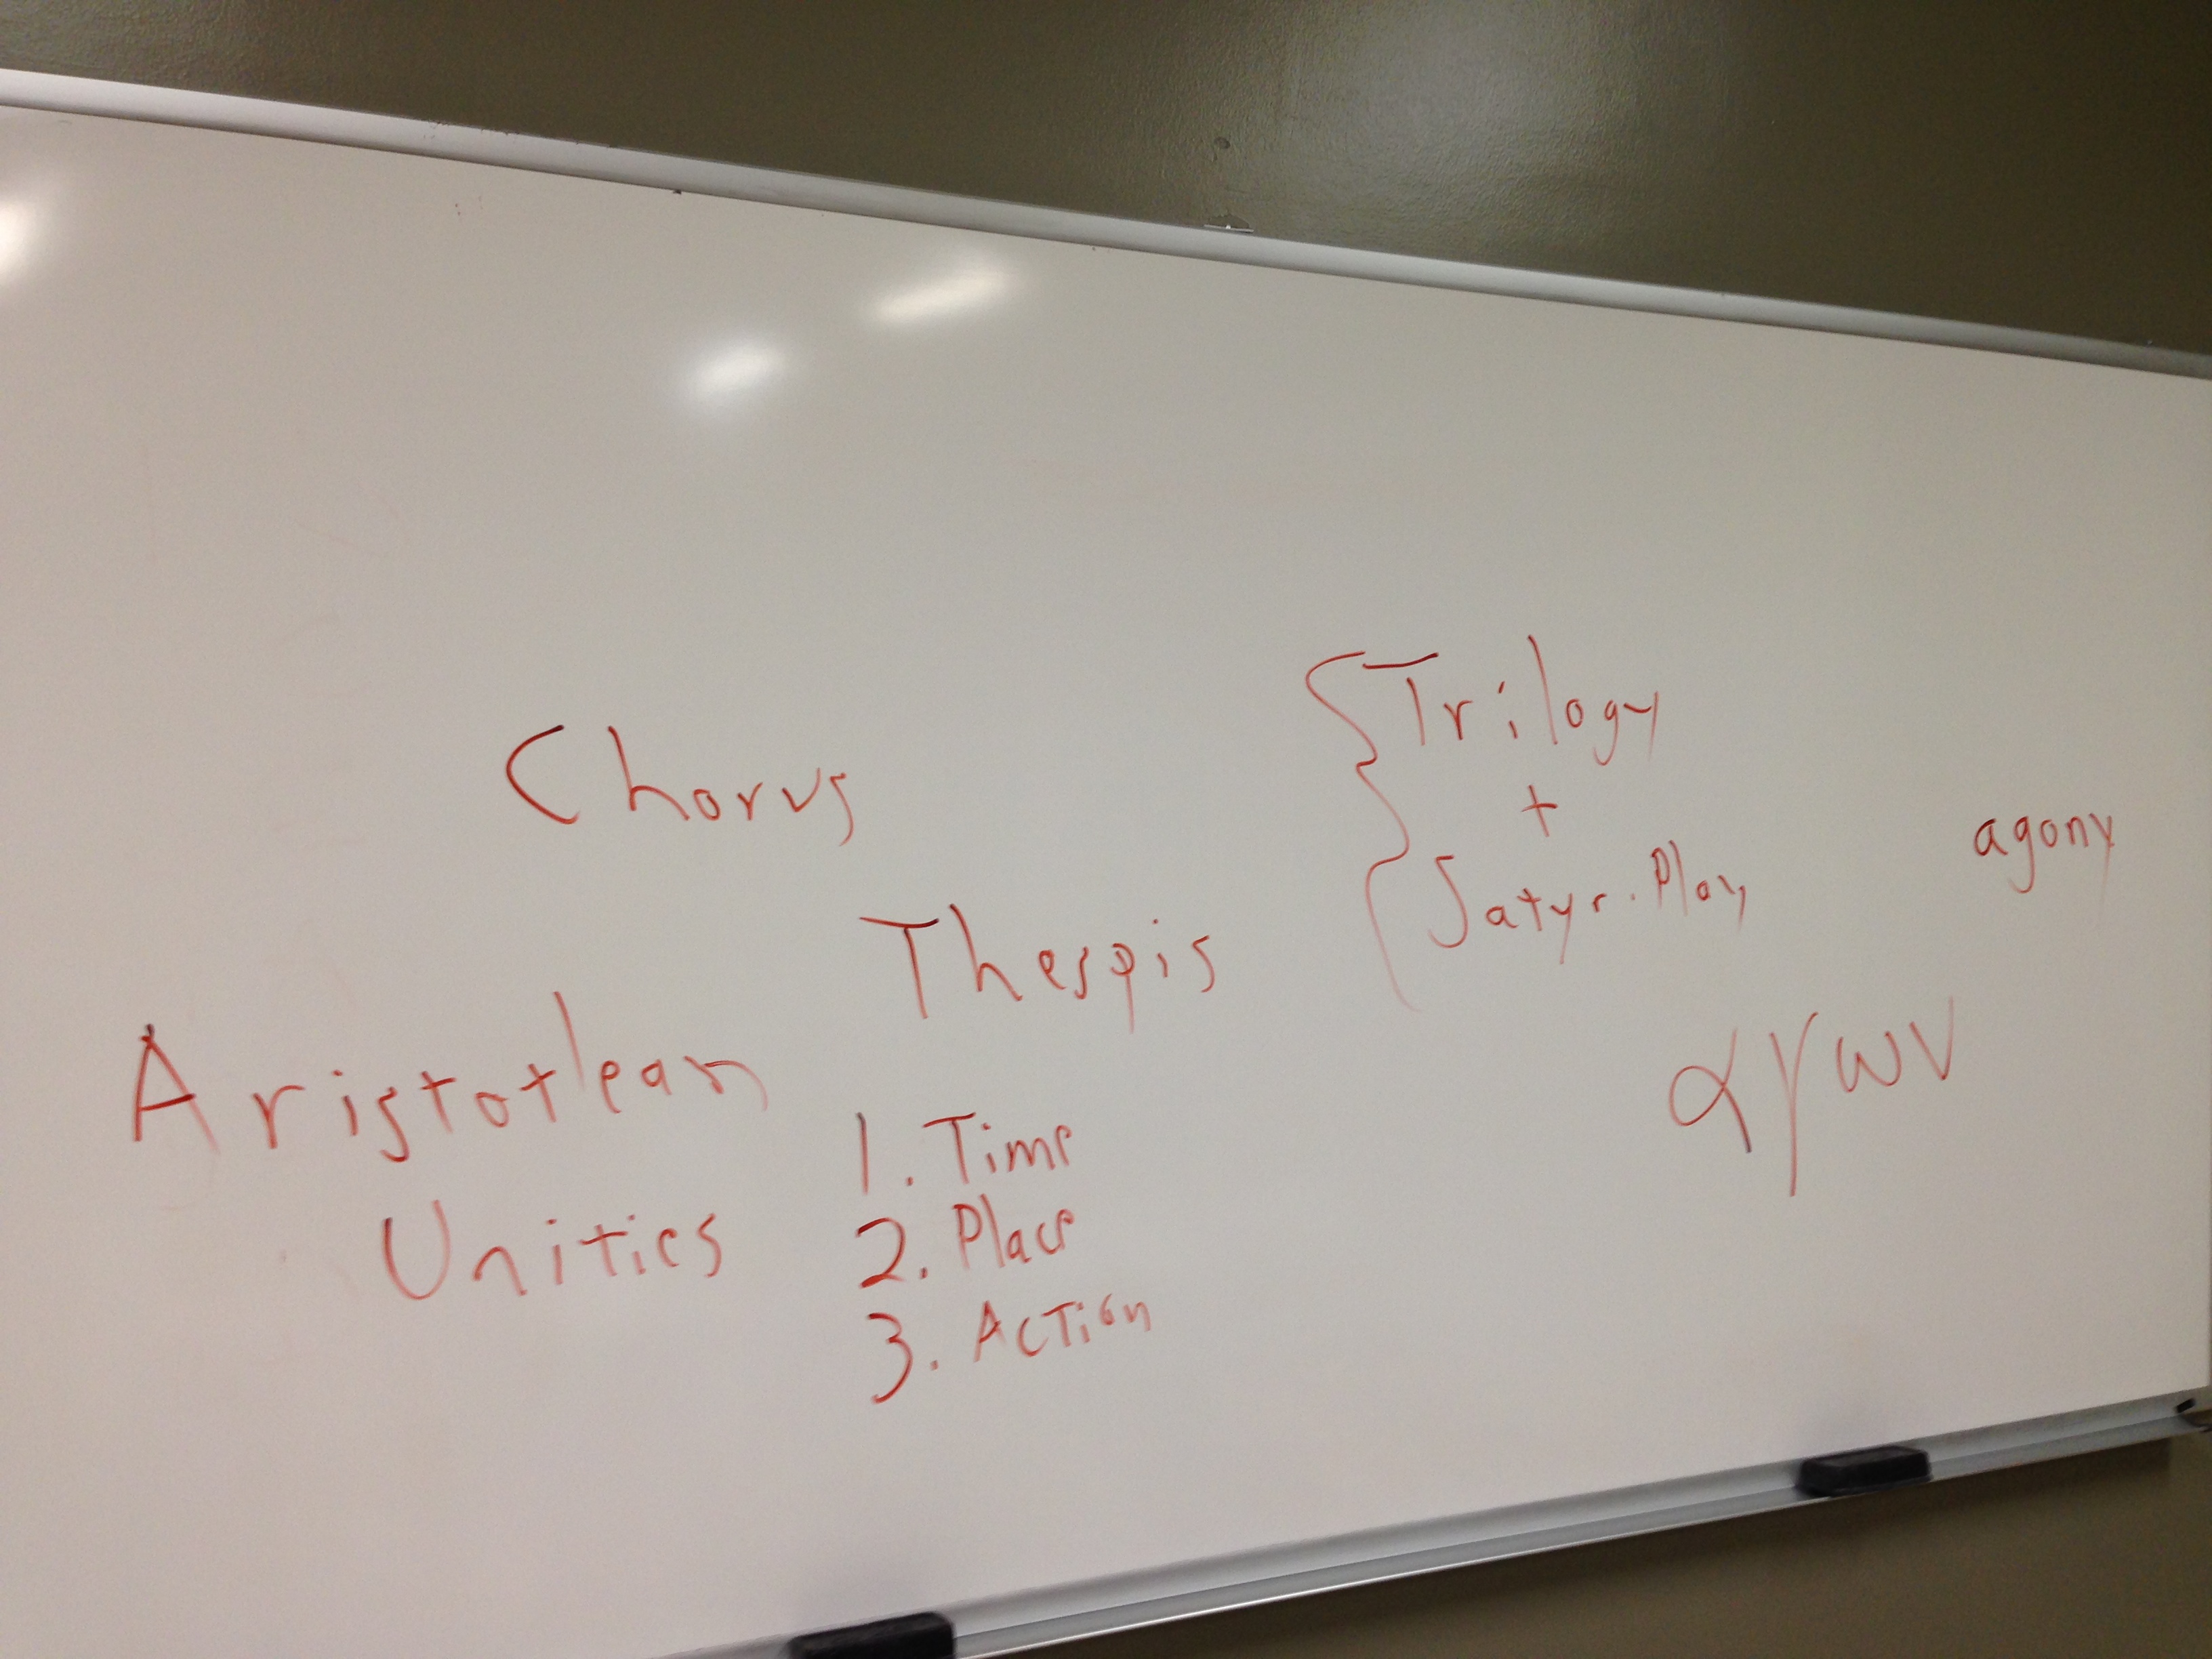 Chorus
Thespis
{ Trilogy
+
Satyr. Play
agony
αγων
Aristotlean
Unities
1. Time
2. Place
3. Action